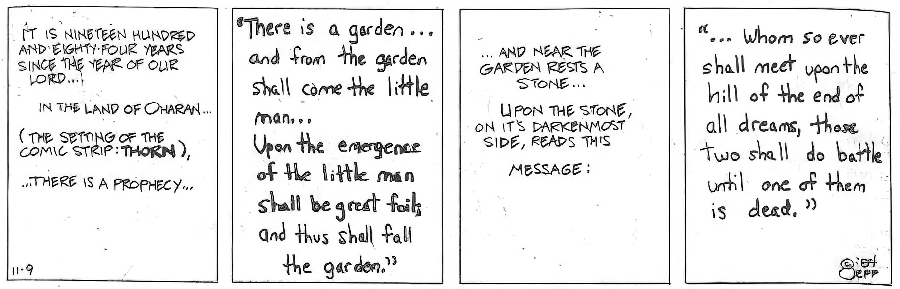 IT IS NINETEEN HUNDRED
AND EIGHTY-FOUR YEARS
SINCE THE YEAR OF OUR
LORD...
IN THE LAND OF OHARAN...
(THE SETTING OF THE
COMIC STRIP: THORN),
...THERE IS A PROPHECY...
11-9
"There is a garden...
and from the garden
shall come the little
man...
Upon the emergence
of the little man
shall be great foils
and thus shall fall
the garden."
...AND NEAR THE
GARDEN RESTS A
STONE...
UPON THE STONE,
ON IT'S DARKENMOST
SIDE, READS THIS
MESSAGE:
"... Whom so ever
shall meet upon the
hill of the end of
all dreams, those
two shall do battle
until one of them
is dead."
© '84
JEFF